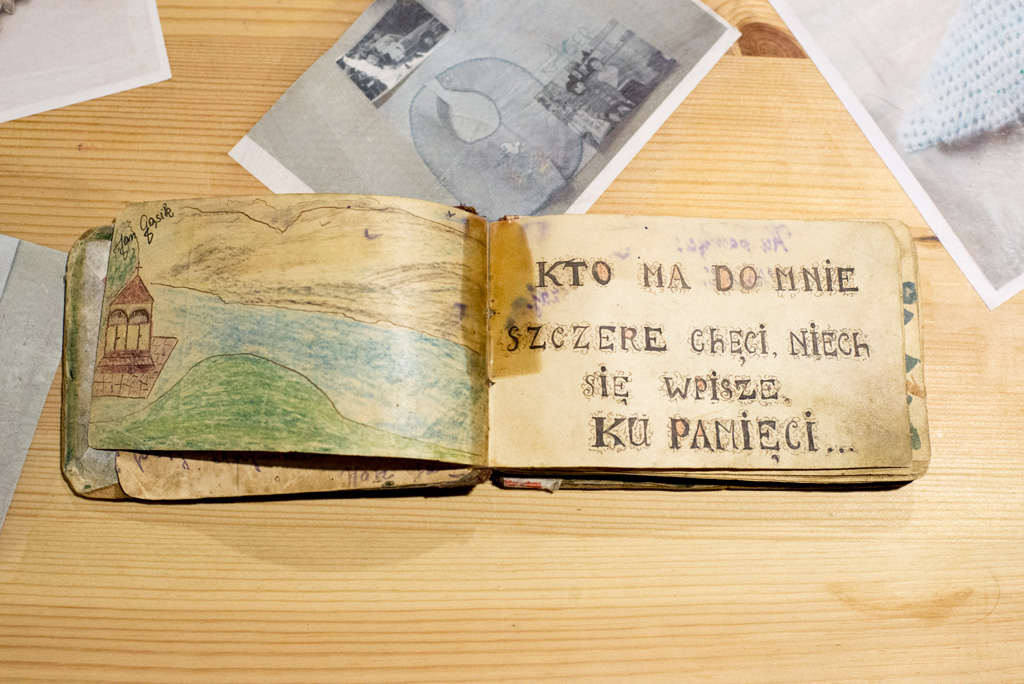 Jan Gąsik
KTO MA DO MNIE
SZCZERE CHĘCI, NIECH
SIĘ WPISZE.
KU PAMIĘCI...